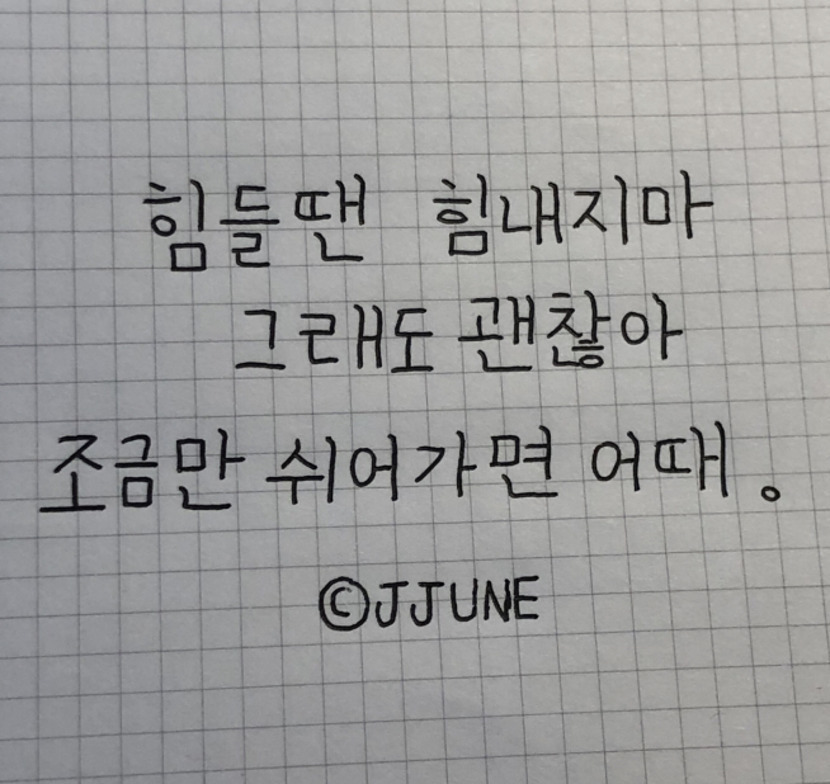 힘들땐 힘내지마
그래도 괜찮아
조금만 쉬어가면 어때。
©JJUNE